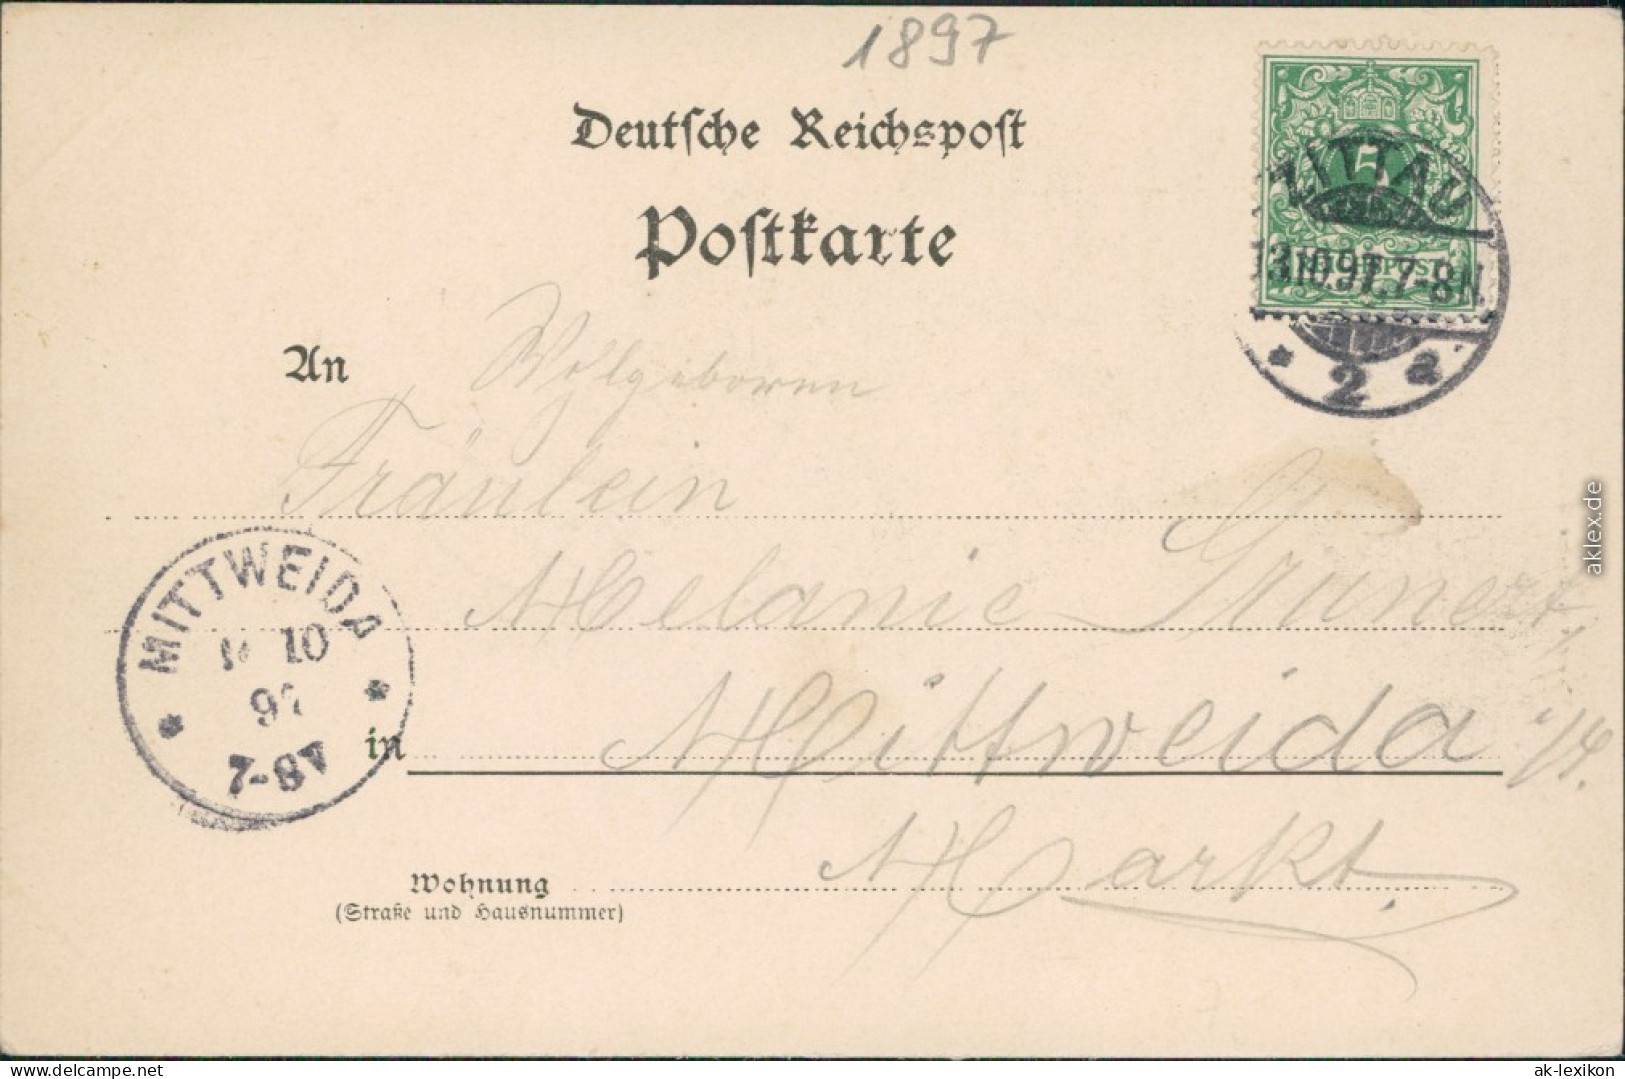 1897
Deutsche Reichspost
Postkarte
5
REICHSPOST
ZITTAU
13.10.97.7-8N.
* 2 a
An Wolgeboren
Fräulein
Melanie Graner
MITTWEIDA
10
97
7-8V
in Mittweida
Markt.
Wohnung
(Straße und Hausnummer)
aklex.de
www.delcampe.net
ak-lexikon